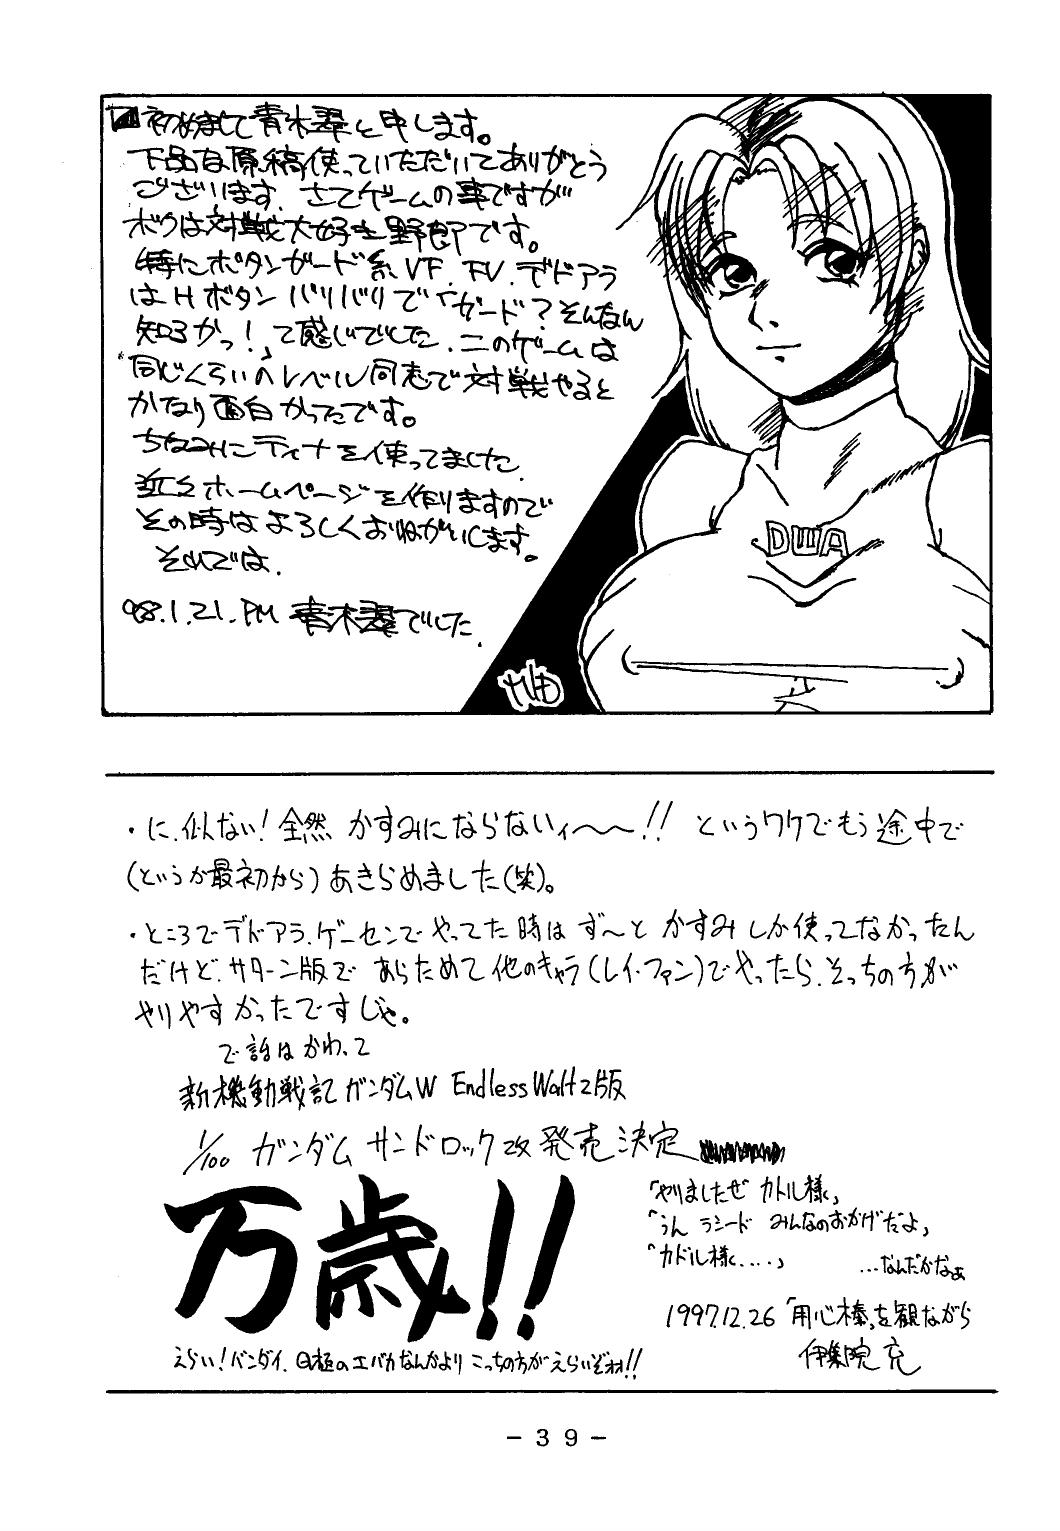 初めまして青木翠と申します。
下品な原稿使っていただいてありがとう
ございます。さてゲームの事ですが
ボクは対戦大好き野郎です。
特にボタンガード系VF、FV、デドアラ
はHボタンバリバリで「ガード?そんなん
知るかっ!」て感じでした。このゲームは
同じくらいのレベル同志で対戦やると
かなり面白かったです。
ちなみにティナを使ってました。
近々ホームページを作りますので
その時はよろしくおねがいします。
それでは。
'98.1.21.PM 青木翠でした。
DWA
・に、似ない!全然かすみにならないィ〜〜!! というワケでもう途中で
(というか最初から)あきらめました(笑)。
・ところでデドアラ、ゲーセンでやってた時はず〜とかすみしか使ってなかったん
だけど、サターン版であらためて他のキャラ(レイ・ファン)でやったら、そっちの方が
やりやすかったですじゃ。
で話はかわって
新機動戦記ガンダムW Endless Waltz版
1/100 ガンダムサンドロック改発売決定
万歳!!
「やりましたぜ カトル様」
「うん ラシード みんなのおかげだよ」
「カトル様....」 ...なんだかなぁ
1997.12.26 「用心棒」を観ながら
伊集院 充
えらい!バンダイ、目極のエバカなんかより こっちの方がえらいぞォォ!!
－39－